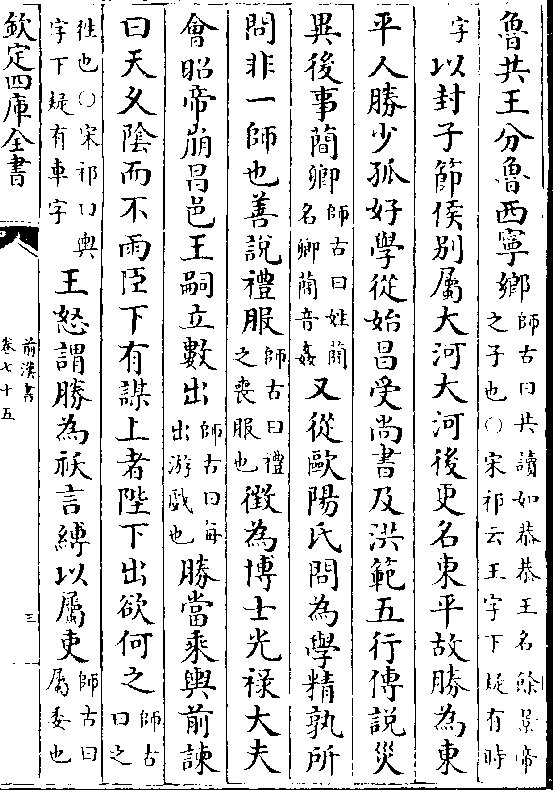 魯共王分魯西寧鄉師古曰共讀如恭恭王名餘景帝之子也○宋祁云王字下疑有時
字以封子節侯別屬大河大河後更名東平故勝為東
平人勝少孤好學從始昌受尚書及洪範五行傳說災
異後事蕳卿師古曰姓蕳名卿蕳音姦又從歐陽氏問為學精孰所
問非一師也善說禮服師古曰禮之喪服也徵為博士光祿大夫
會昭帝崩昌邑王嗣立數出師古曰每出游戲也勝當乘輿前諫
曰天久陰而不雨臣下有謀上者陛下出欲何之師古曰之
徃也○宋祁曰輿字下疑有車字王怒謂勝為祅言縛以屬吏師古曰屬委也
欽定四庫全書
前漢書
卷七十五
三